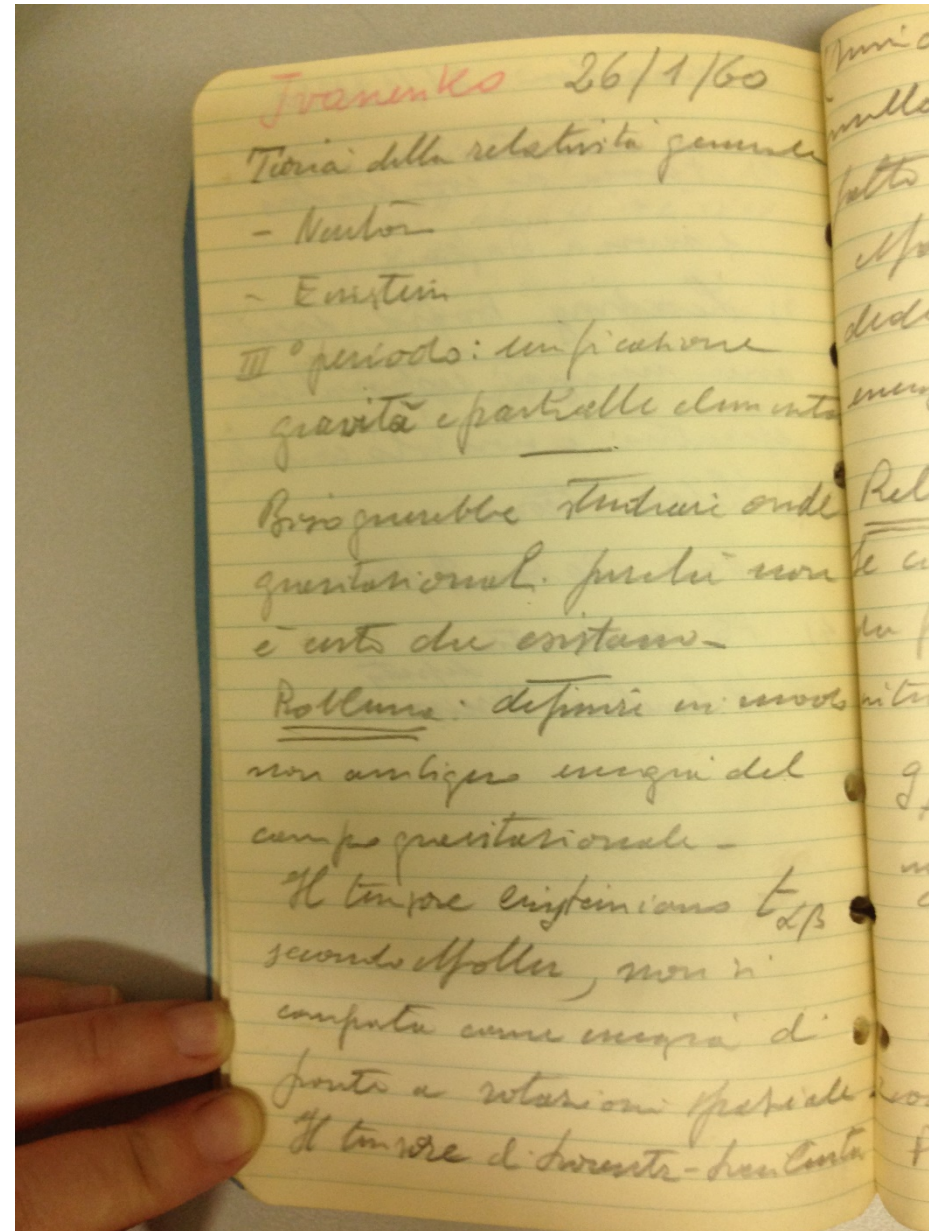 Ivanenko 26/1/60
Teoria della relatività generale
- Newton
- Einstein
III° periodo: unificazione
gravità e particelle elementa
Bisognerebbe studiare onde
gravitazionali perchè non
è certo che esistano -
Problema: definire in modo
non ambiguo energia del
campo gravitazionale -
Il tensore einsteiniano t αβ
secondo Møller, non si
comporta come energia di
fronte a rotazioni spaziali
Il tensore di Lorentz-Levi Civita
nulla
fatto
Rel